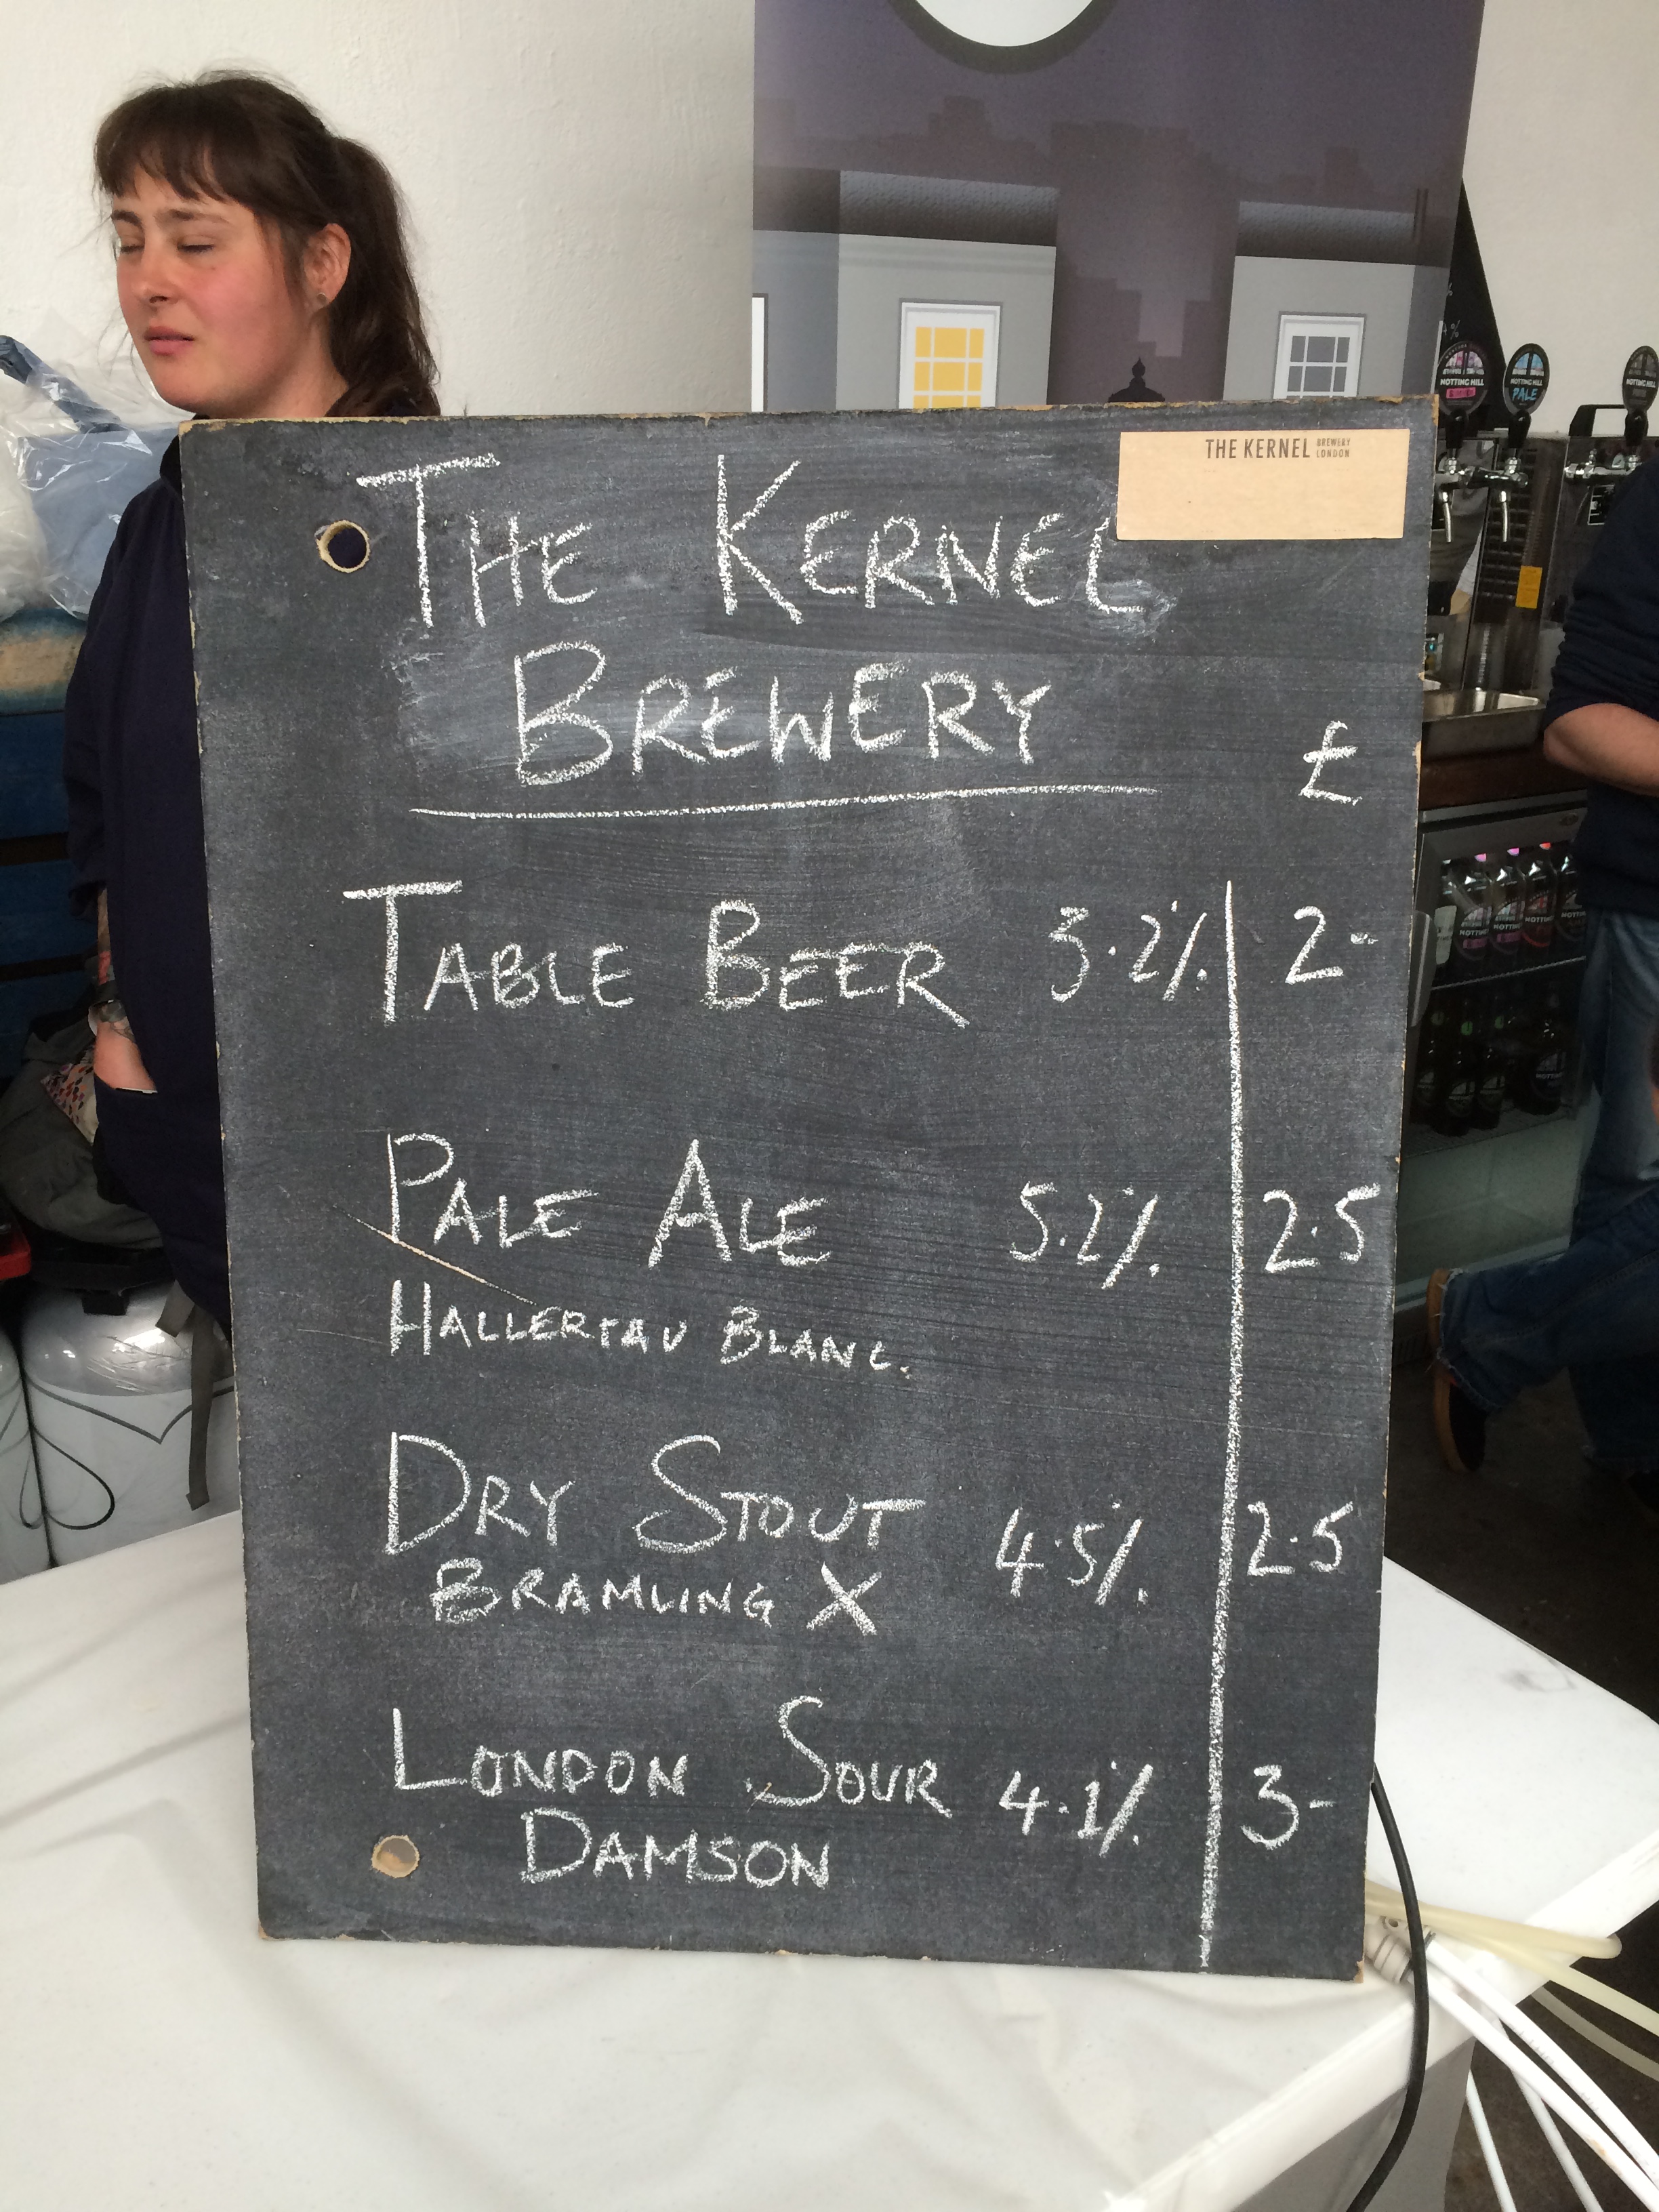 THE KERNEL BREWERY
LONDON
THE KERNEL
BREWERY
£
TABLE BEER 3.2% 2-
PALE ALE 5.2% 2.5
HALLERTAU BLANC.
DRY STOUT 4.5% 2.5
BRAMLING X
LONDON SOUR 4.1% 3-
DAMSON
NOTTING HILL
NOTTING HILL
PALE